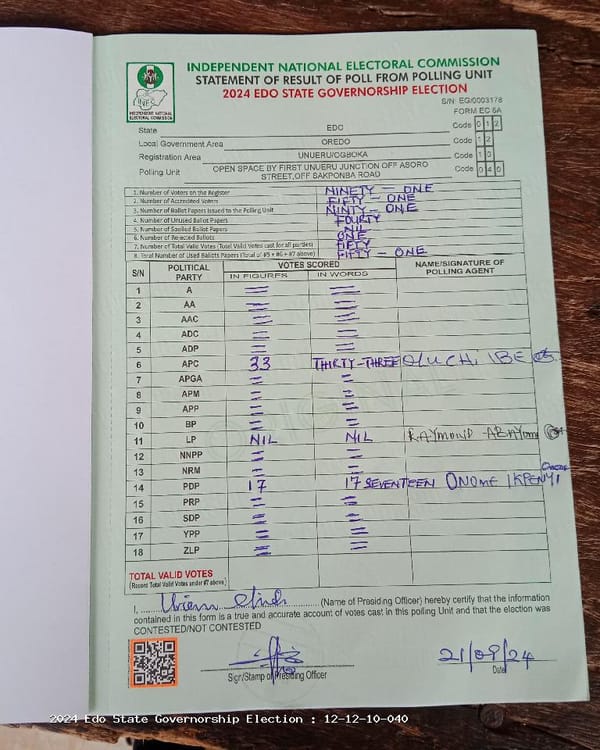 INDEPENDENT NATIONAL ELECTORAL COMMISSION
STATEMENT OF RESULT OF POLL FROM POLLING UNIT
2024 EDO STATE GOVERNORSHIP ELECTION
INDEPENDENT NATIONAL ELECTORAL COMMISSION
S/N: EG/0003178
FORM EC 8A
State EDO Code 0 1 2
Local Government Area OREDO Code 1 2
Registration Area UNUERU/OGBOKA Code 1 0
Polling Unit OPEN SPACE BY FIRST UNUERU JUNCTION OFF ASORO STREET,OFF SAKPONBA ROAD Code 0 4 0
1. Number of Voters on the Register NINETY - ONE
2. Number of Accredited Voters FIFTY - ONE
3. Number of Ballot Papers Issued to the Polling Unit NINTY - ONE
4. Number of Unused Ballot Papers FOURTY
5. Number of Spoiled Ballot Papers NIL
6. Number of Rejected Ballots ONE
7. Number of Total Valid Votes (Total Valid Votes cast for all parties) FIFTY
8. Total Number of Used Ballots Papers (Total of #5 + #6 + #7 above) FIFTY - ONE
S/N POLITICAL PARTY VOTES SCORED NAME/SIGNATURE OF POLLING AGENT
IN FIGURES IN WORDS
1 A = =
2 AA = =
3 AAC = =
4 ADC = =
5 ADP = =
6 APC 33 THIRTY-THREE OLUCHI IBE
7 APGA = =
8 APM = =
9 APP = =
10 BP = =
11 LP NIL NIL RAYMOND
12 NNPP = =
13 NRM = =
14 PDP 17 17 SEVENTEEN ONOME IKPENYI
15 PRP = =
16 SDP = =
17 YPP = =
18 ZLP = =
TOTAL VALID VOTES
(Record Total Valid Votes under #7 above)
I, (Name of Presiding Officer) hereby certify that the information
contained in this form is a true and accurate account of votes cast in this polling Unit and that the election was
CONTESTED/NOT CONTESTED
21/09/24
Sign/Stamp of Presiding Officer Date
2024 Edo State Governorship Election : 12-12-10-040